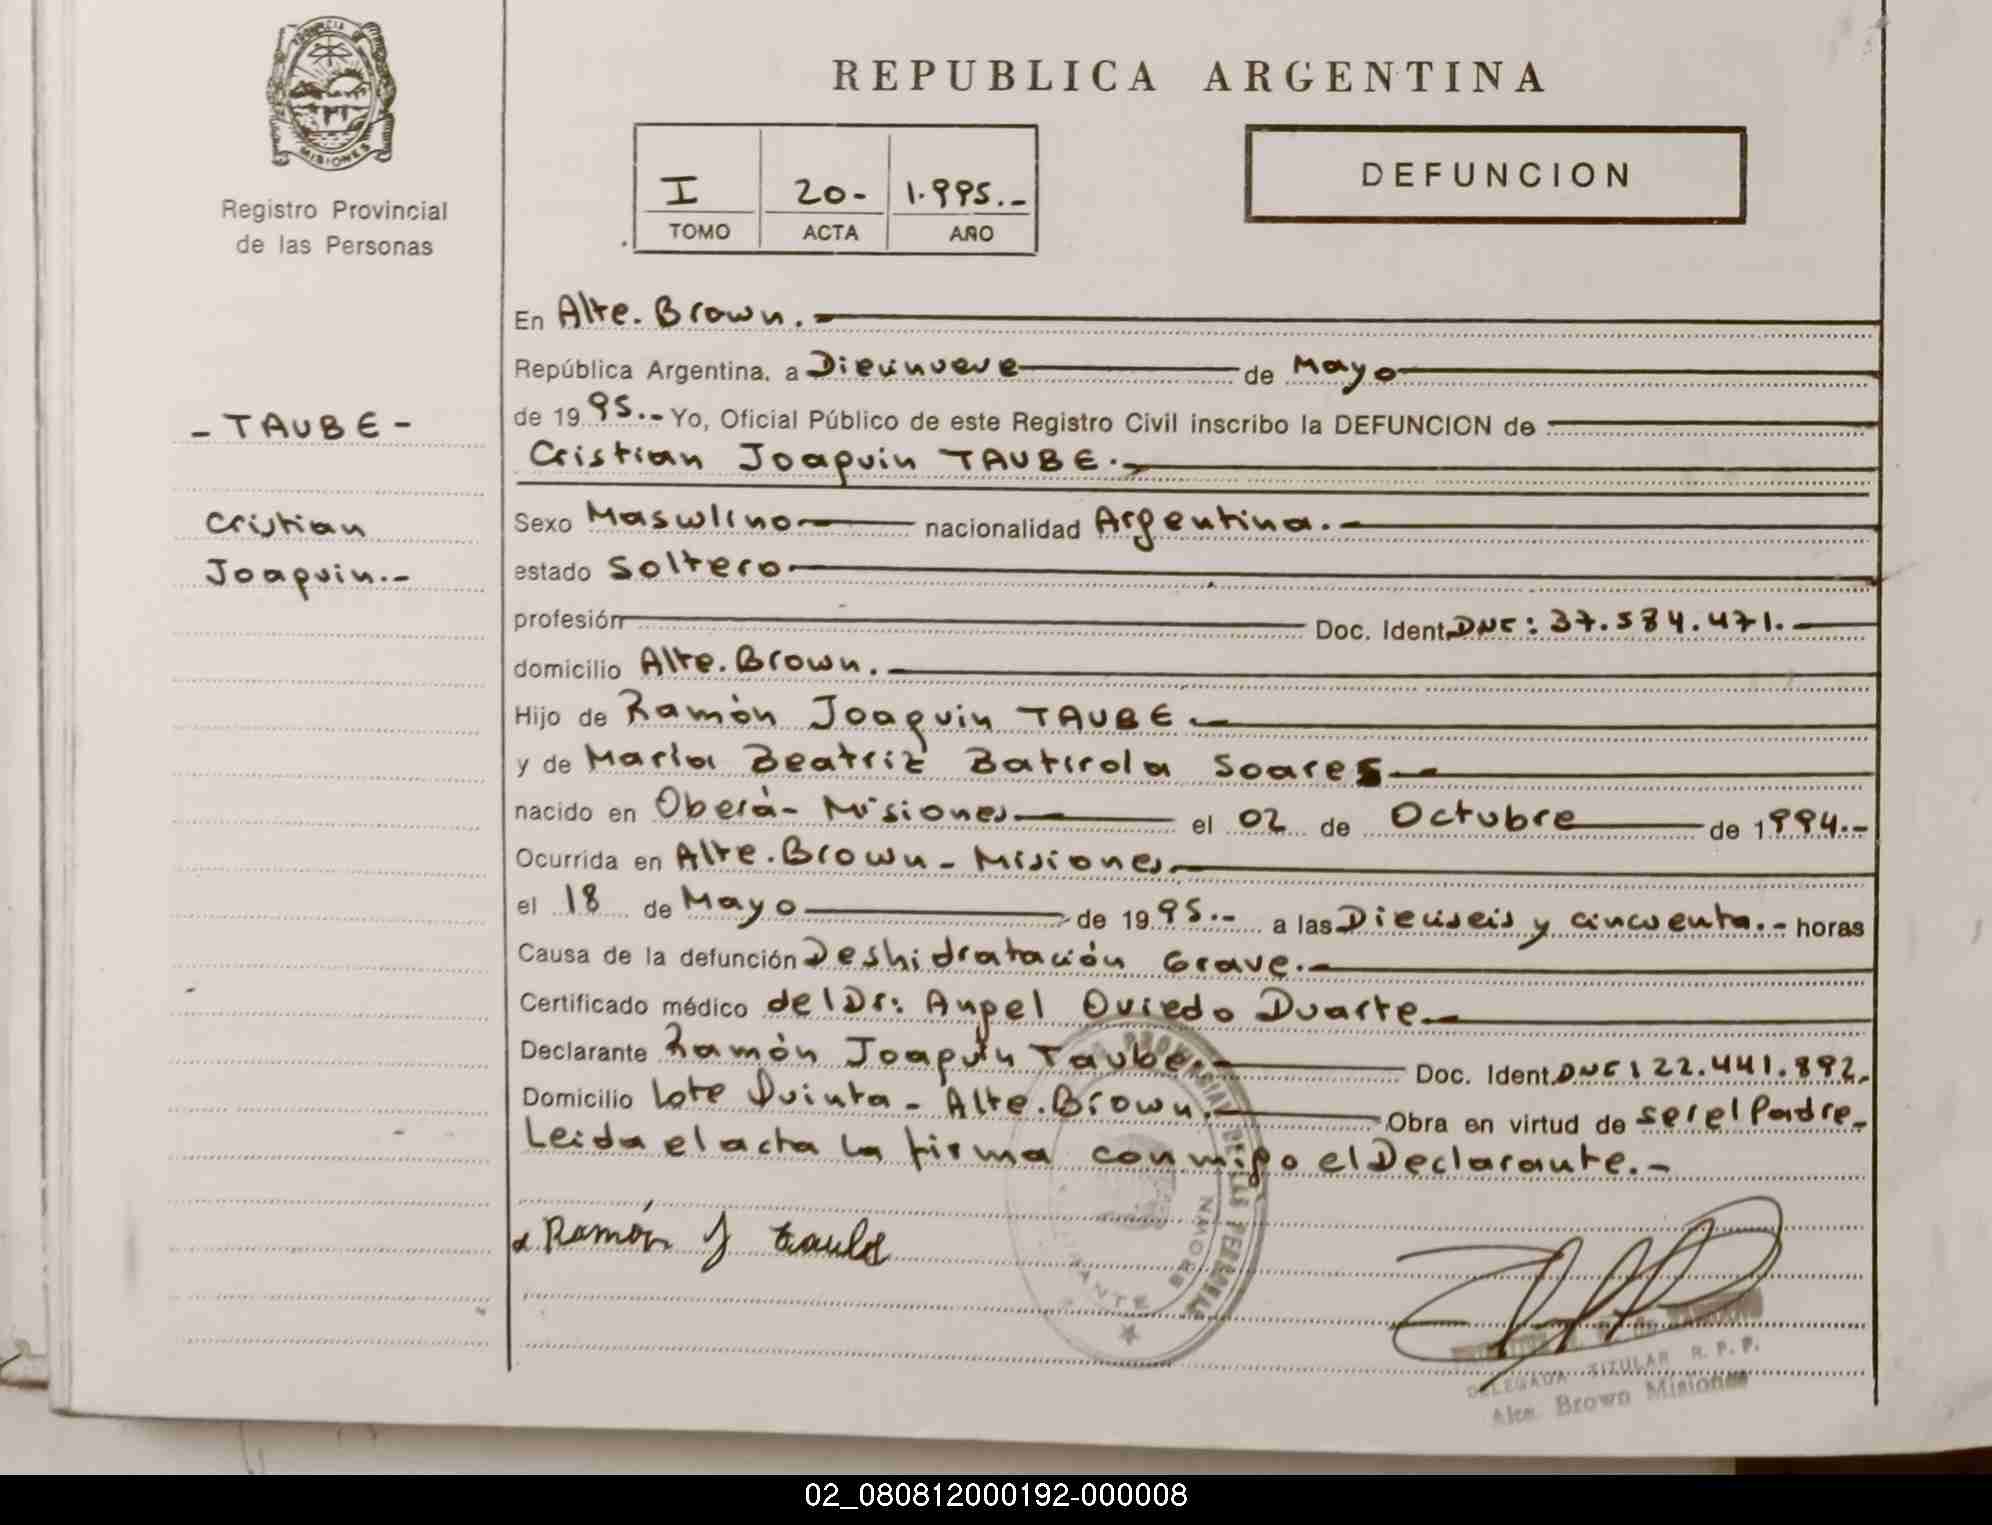 PROVINCIA DE
MISIONES
Registro Provincial
de las Personas
- TAUBE -
Cristian
Joaquin.-
REPUBLICA ARGENTINA
I 20- 1.995.-
TOMO ACTA AÑO
DEFUNCION
En Alte. Brown.-
República Argentina, a Diecinueve de Mayo
de 1995.- Yo, Oficial Público de este Registro Civil inscribo la DEFUNCION de
Cristian Joaquin TAUBE.-
Sexo Masculino nacionalidad Argentina.-
estado Soltero
profesión Doc. Ident. DNI: 37.584.471.-
domicilio Alte. Brown.-
Hijo de Ramón Joaquin TAUBE.-
y de María Beatriz Batirola Soares-
nacido en Oberá- Misiones el 02 de Octubre de 1994.-
Ocurrida en Alte. Brown - Misiones
el 18 de Mayo de 1995.- a las Dieciseis y cincuenta.- horas
Causa de la defunción Deshidratación Grave.-
Certificado médico del Dr: Angel Oviedo Duarte.-
Declarante Ramón Joaquín Taube- Doc. Ident. DNI: 22.441.892.
Domicilio Lote Quinta - Alte. Brown.- Obra en virtud de ser el Padre.-
Leida el acta la firma conmigo el Declarante.-
Ramón J Taube
BROWN
DELEGADA TITULAR R. P. P.
Alte. Brown Misiones
02_080812000192-000008